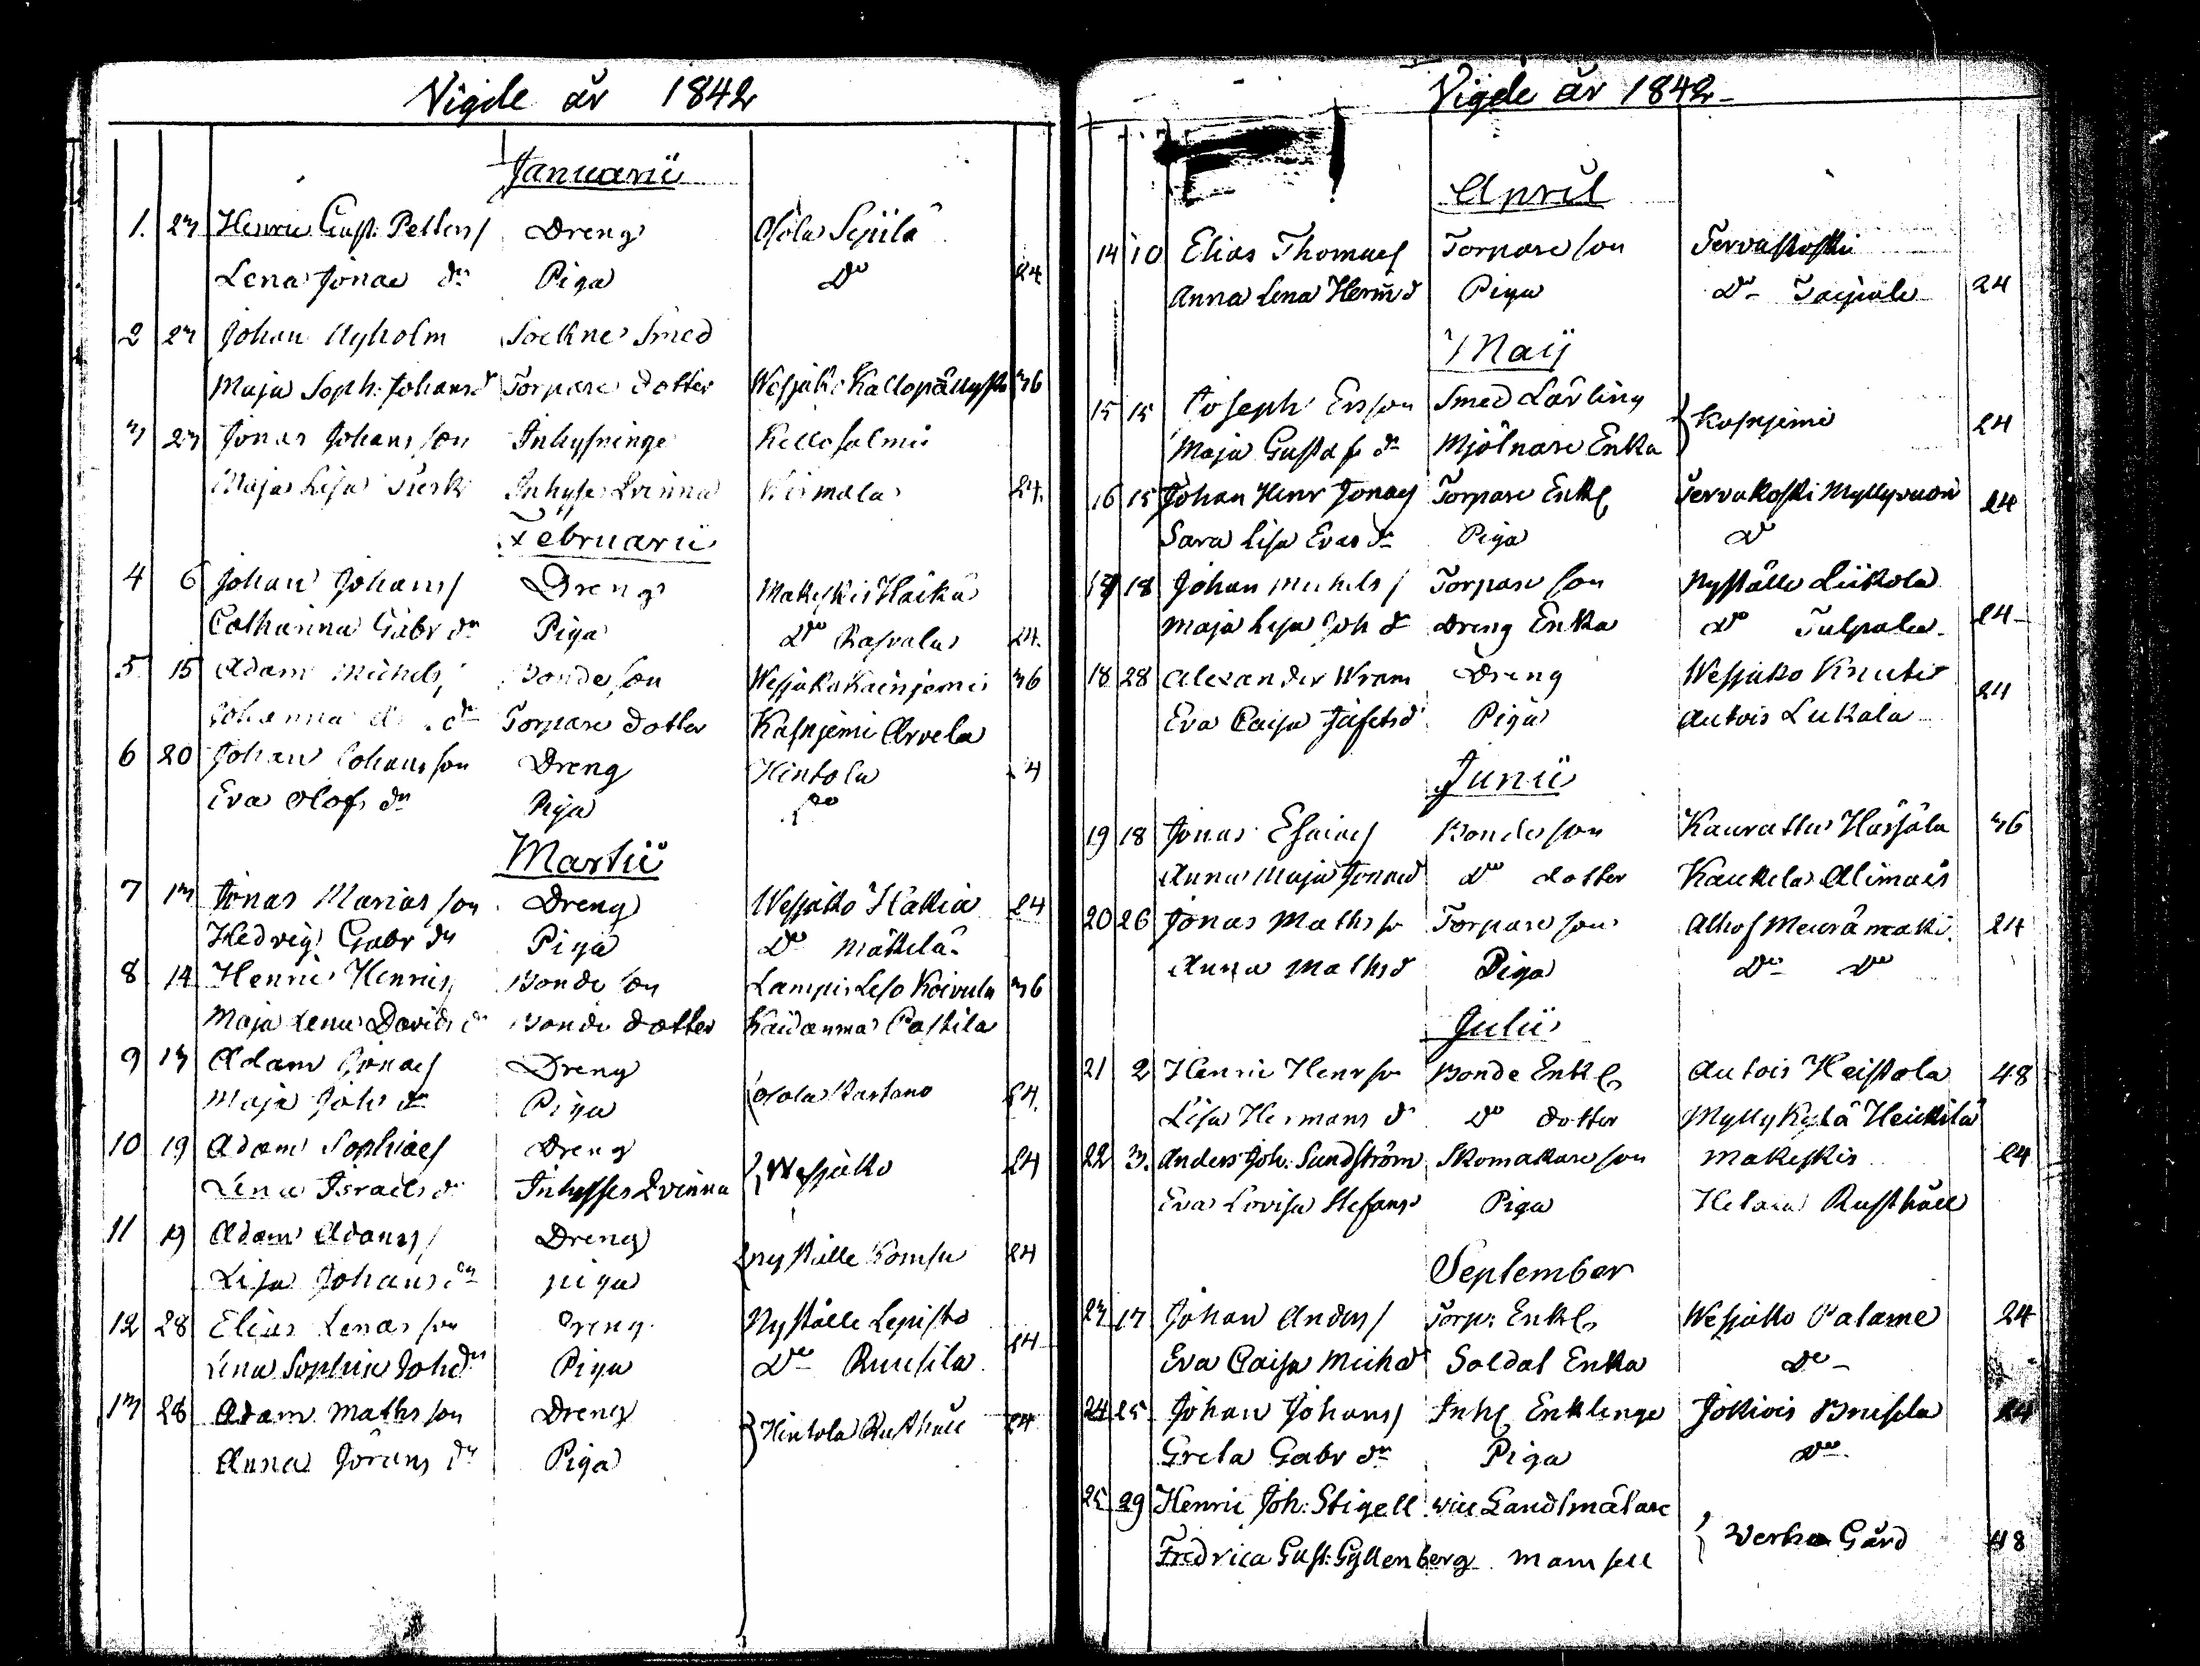 Vigde år 1842
Januarii
1. 23 Henric Gust. Petters/ Dreng Osola Sipilä
Lena Jonae dr Piga Do 24
2 23 Johan Nyholm Sockne Smed
Maja Soph: Johansd Torpare dotter Wesjako Kallopällysto 36
3 23 Jonas Johansson Inhysninge Kellosalmi
Maja Lisa Turk Inhyses Qvinna Kirmola 24.
Februarii
4 6 Johan Johans/ Dreng Makeskis Haikä
Catharina Gabr dr Piga Do Rasvala 24.
5 15 Adam Michels/ Bonde son Wesjako Kainjemi 36
Johanna dr Torpare dotter Kasnjemi Arvela
6 20 Johan Johansson Dreng Hintola 24
Eva Olofs dr Piga Do
Martii
7 13 Jonas Mariasson Dreng Wesjako Hakia 24
Hedvig Gabr dr Piga Do Mäkelä
8 14 Henric Henrics/ Bonde son Lampis Leso Koivula 36
Maja Lena Davids dr Bonde dotter Kaidanma Pastila
9 13 Adam Jonaes/ Dreng
Maja Johs dr Piga Osola Kartano 24.
10 19 Adam Sophiaes/ Dreng
Lena Israels dr Inhysses Qvinna Wesjako 24
11 19 Adam Adams/ Dreng
Lisa Johans dr piga nyställe Komsu 24
12 28 Elias Lenasson Dreng Nyställe Lepisto
Lena Sophia Joh dr Piga Do Ruusila 24
13 28 Adam Mathsson Dreng
Anna Jörans dr Piga Hintola Rusthåll 24
Vigde år 1842
April
14 10 Elias Thomaes/ Torpare son Tervakoski
Anna Lena Herm̄ d Piga Do Taipale 24
Maij
15 15 Joseph Ersson Smed Lärling
Maja Gustafs dr Mjölnare Enka Kasnjemi 24
16 15 Johan Henr Jonaes/ Torpare Enkl Tervakoski Myllyvuori 24
Sara Lisa Evas dr Piga Do
17 18 Johan Michels/ Torpare son Nyställe Liikola
Maja Lisa Joh dr Dreng Enka Do Tulpala 24
18 28 Alexander Wram Dreng Wesjako Knuti
Eva Caisa Jafetsd Piga Autois Lukala 24
Junii
19 18 Jonas Esaiaes/ Bondeson Kaurattu Harjäla 36
Anna Maja Jonaed Do dotter Kaukela Alimais
20 26 Jonas Maths so Torpare son Alhos Meurämaki 24
Anna Mathsd Piga Do Do
Julii
21 2 Henric Henr so Bonde Enkl Autois Heistola 48
Lisa Hermans d Do dotter Myllykylä Heikkilä
22 3. Anders Joh. Sundström Skomakare son Makeskis 24
Eva Lovisa Stefansd Piga Helara Rusthåll
September
23 17 Johan Anders/ Torp: Enkl Wesjako Palame 24
Eva Caisa Michd Soldat Enka Do
24 25 Johan Johans/ Inhs Enklinge Jokiois Bruskla 24
Greta Gabr dr Piga Do
25 29 Henric Joh: Stigell vice Landtmätare
Fredrica Gust: Gyllenberg mamsell Werho Gård 48